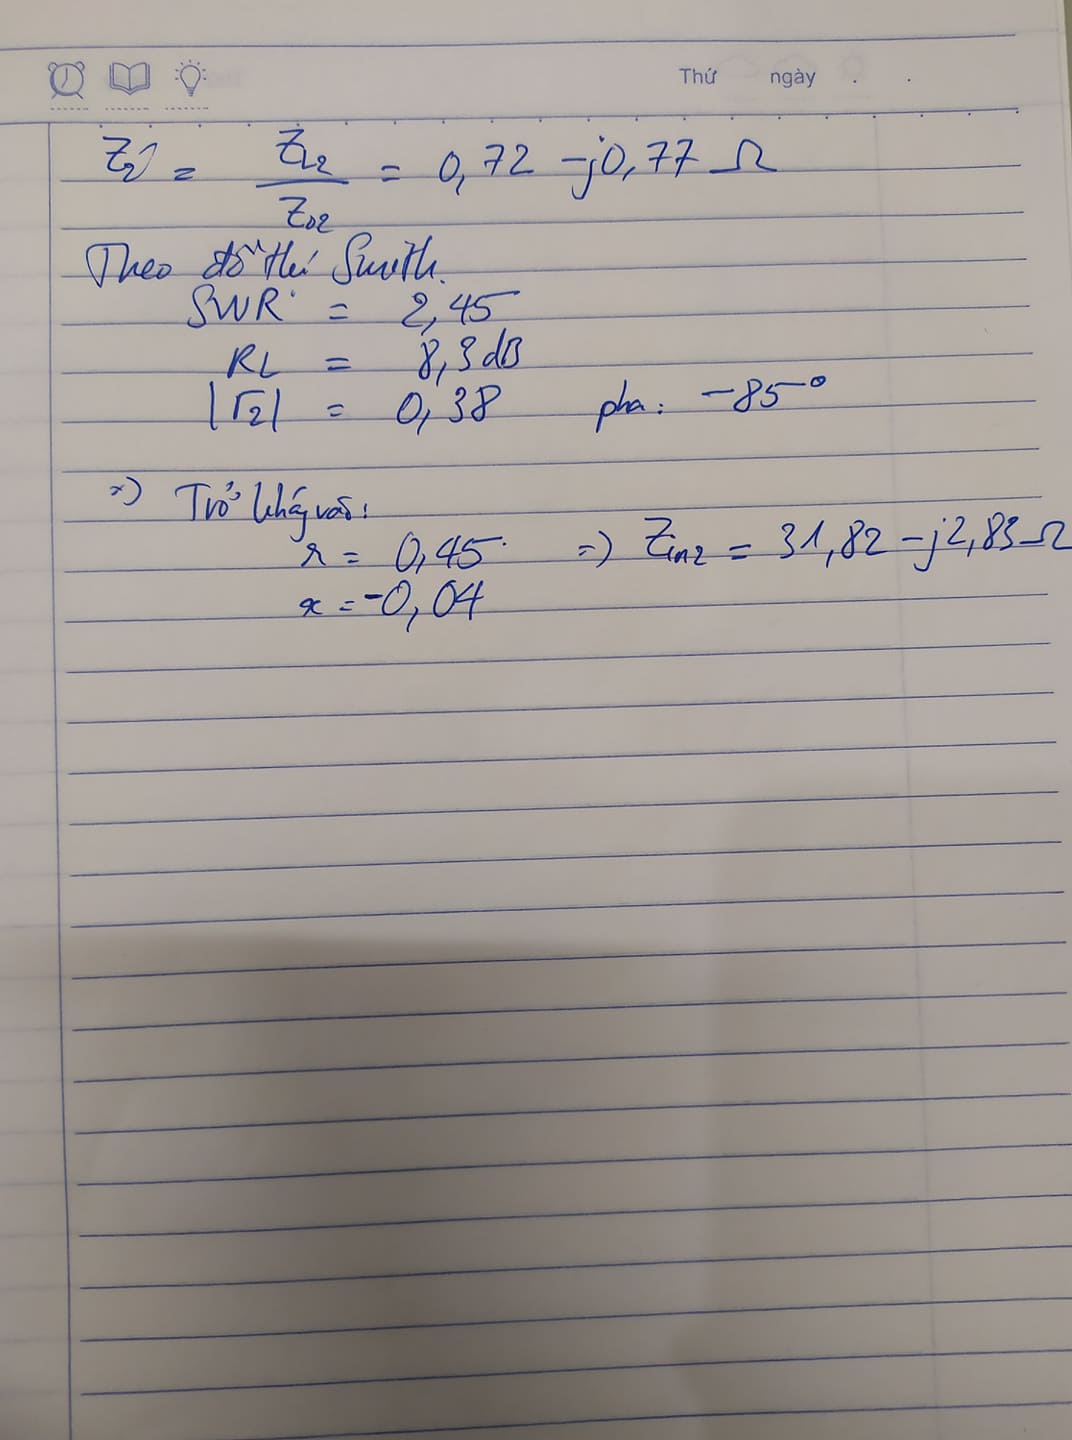 Thứ ngày . .
Z₂' = Z_L2 / Z_02 = 0,72 - j0,77 Ω
Theo đồ thị Smith.
SWR = 2,45
RL = 8,3 dB
|Γ₂| = 0,38 pha: -85°
*) Trở kháng vào:
r = 0,45 => Z_in2 = 31,82 - j2,83 Ω
x = -0,04